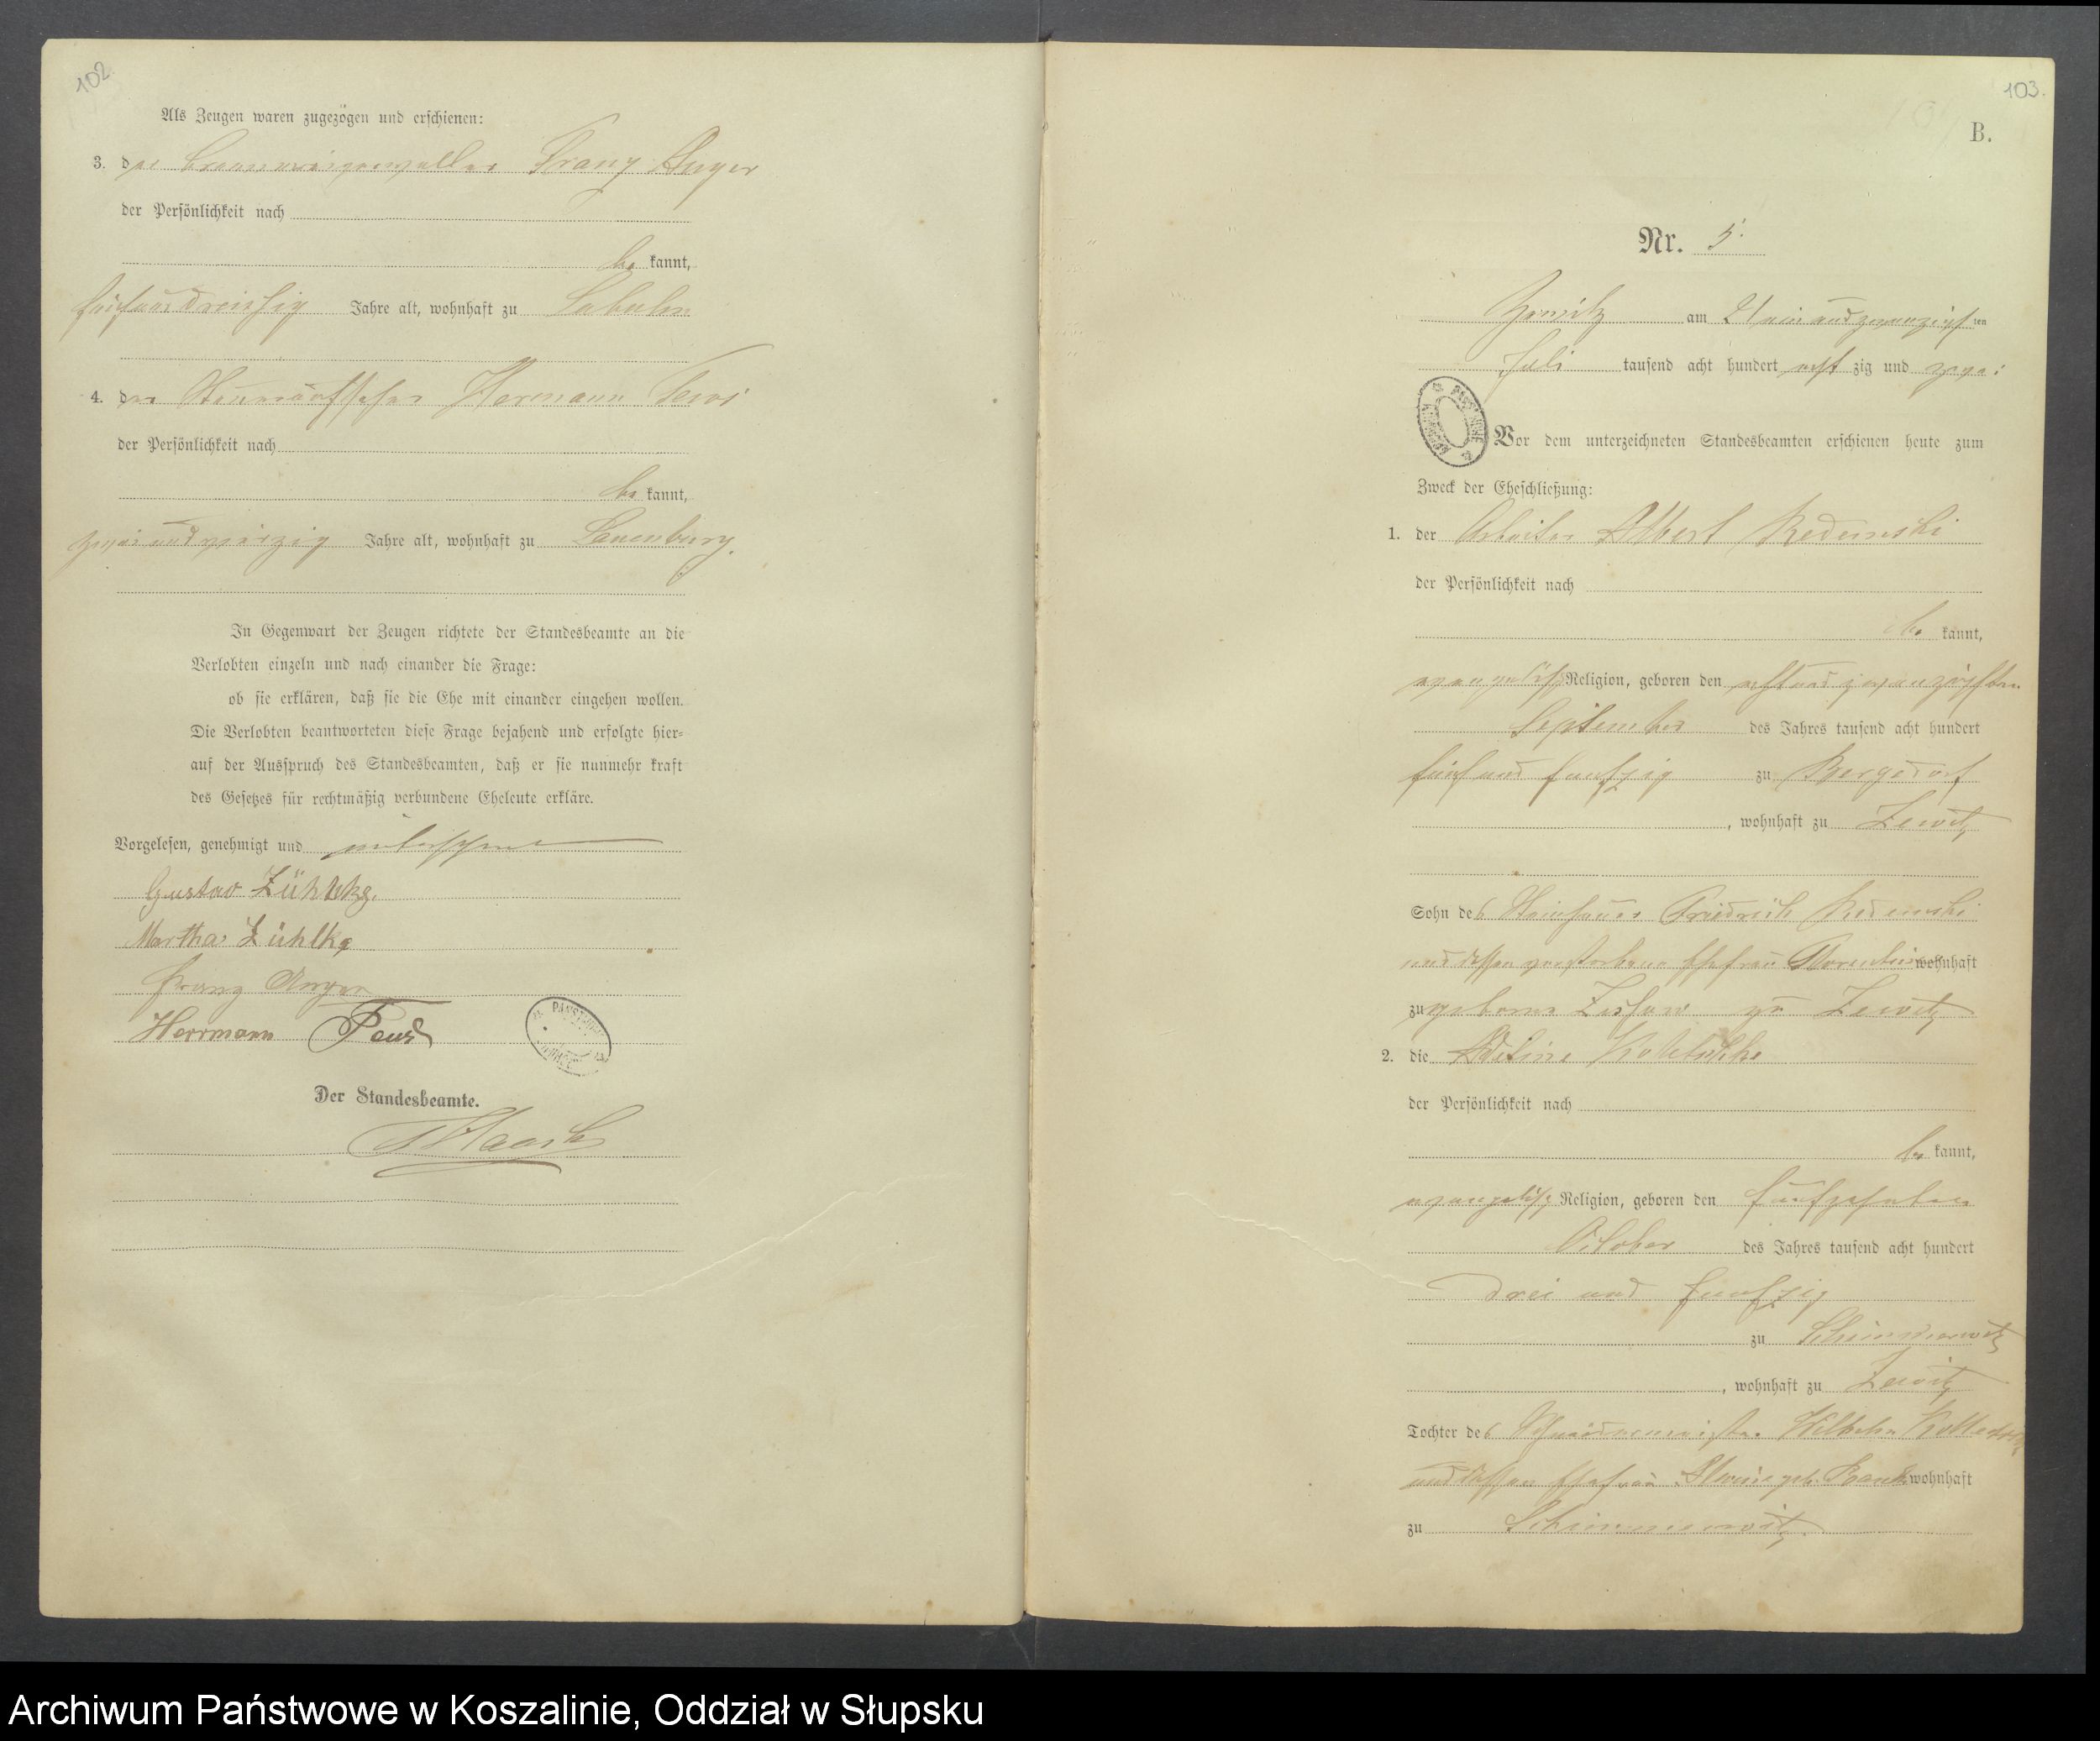 102
Als Zeugen waren zugezogen und erschienen:
3. der Franz Anger
der Persönlichkeit nach
be kannt,
fünfunddreißig Jahre alt, wohnhaft zu Labuhn
4. der Steueraufseher Hermann
der Persönlichkeit nach
be kannt,
zweiundvierzig Jahre alt, wohnhaft zu Lauenburg.
In Gegenwart der Zeugen richtete der Standesbeamte an die
Verlobten einzeln und nach einander die Frage:
ob sie erklären, daß sie die Ehe mit einander eingehen wollen.
Die Verlobten beantworteten diese Frage bejahend und erfolgte hier-
auf der Ausspruch des Standesbeamten, daß er sie nunmehr kraft
des Gesetzes für rechtmäßig verbundene Eheleute erkläre.
Vorgelesen, genehmigt und unterschrieben
Gustav Zühlke.
Martha Zühlke
Franz Anger
Herrmann
Der Standesbeamte.
103.
B.
Nr. 5.
Zewitz am 2ten
Juli tausend acht hundert acht zig und zwei
Vor dem unterzeichneten Standesbeamten erschienen heute zum
Zweck der Eheschließung:
1. der Arbeiter Albert Redemski
der Persönlichkeit nach
be kannt,
evangelisch Religion, geboren den achtundzwanzigsten
September des Jahres tausend acht hundert
fünf und funfzig zu Bergsdorf
, wohnhaft zu Zewitz
Sohn des Friedrich Redemski
und dessen verstorbene Ehefrau wohnhaft
zu geborne zu Zewitz
2. die
der Persönlichkeit nach
be kannt,
evangelisch Religion, geboren den funfzehnten
October des Jahres tausend acht hundert
drei und funfzig
zu Schimmerwitz
, wohnhaft zu Zewitz
Tochter des Wilhelm
und dessen Ehefrau geb. wohnhaft
zu Schimmerwitz
Archiwum Państwowe w Koszalinie, Oddział w Słupsku